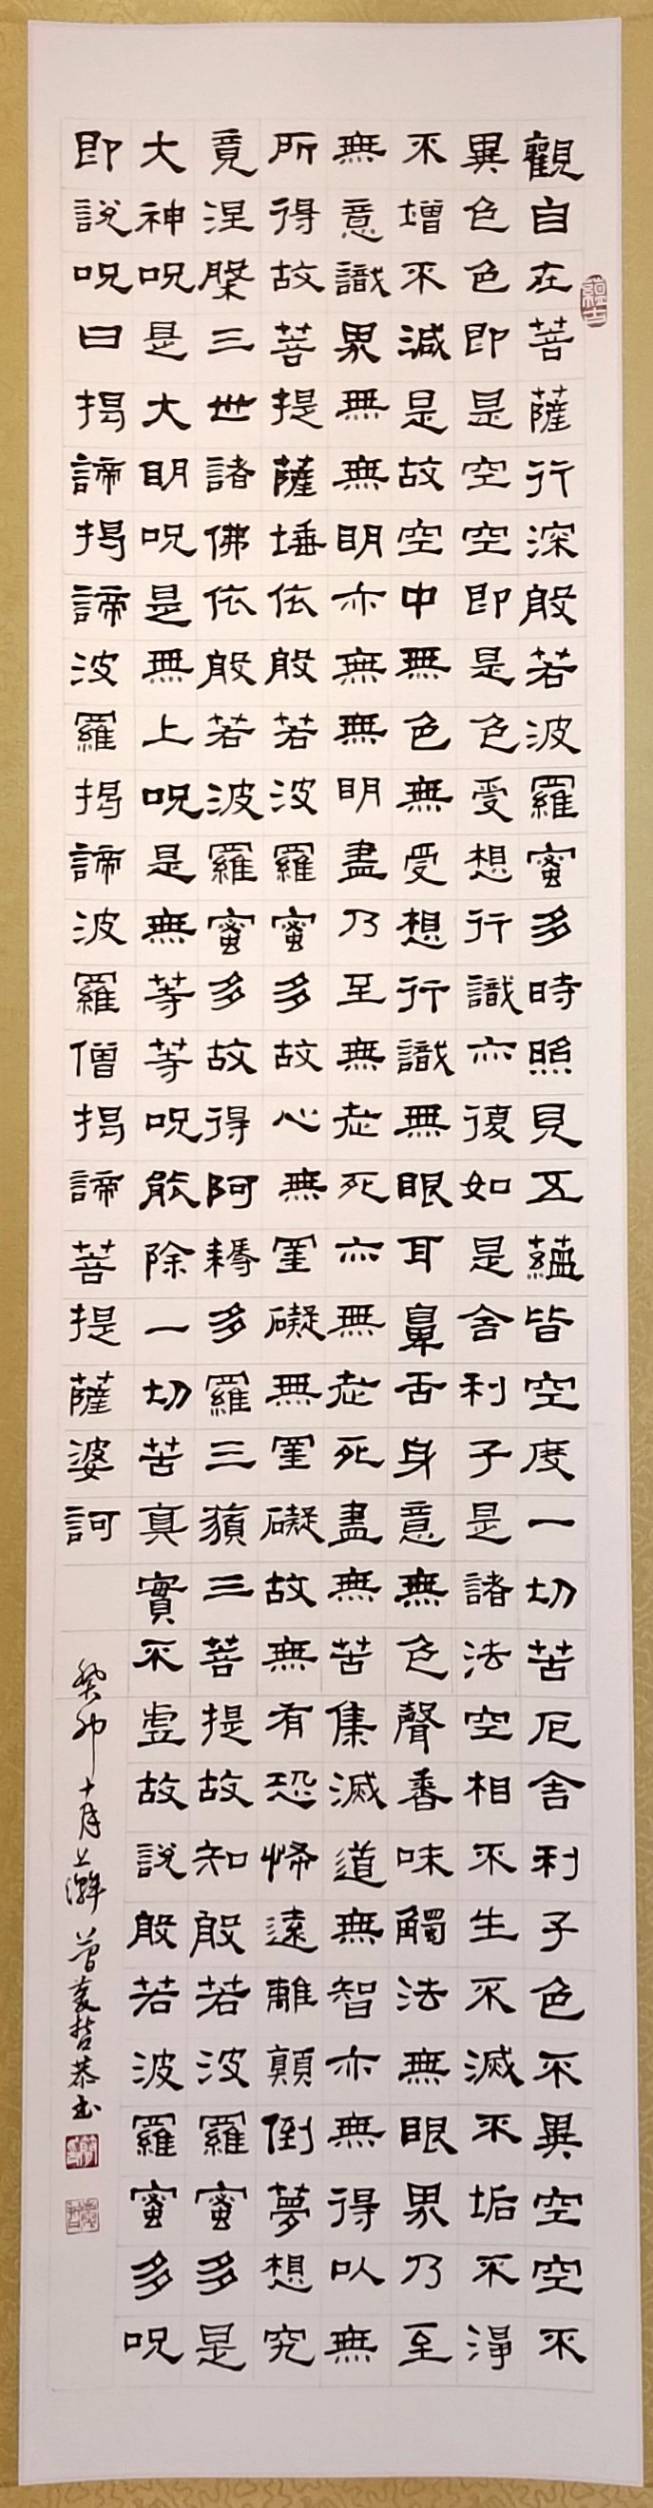 觀自在菩薩行深般若波羅蜜多時照見五蘊皆空度一切苦厄舍利子色不異空空不
異色色即是空空即是色受想行識亦復如是舍利子是諸法空相不生不滅不垢不淨
不增不減是故空中無色無受想行識無眼耳鼻舌身意無色聲香味觸法無眼界乃至
無意識界無無明亦無無明盡乃至無老死亦無老死盡無苦集滅道無智亦無得以無
所得故菩提薩埵依般若波羅蜜多故心無罣礙無罣礙故無有恐怖遠離顛倒夢想究
竟涅槃三世諸佛依般若波羅蜜多故得阿耨多羅三藐三菩提故知般若波羅蜜多是
大神呪是大明呪是無上呪是無等等呪能除一切苦真實不虛故說般若波羅蜜多呪
即說呪曰揭諦揭諦波羅揭諦波羅僧揭諦菩提薩婆訶
癸卯十月上澣曾義哲恭書